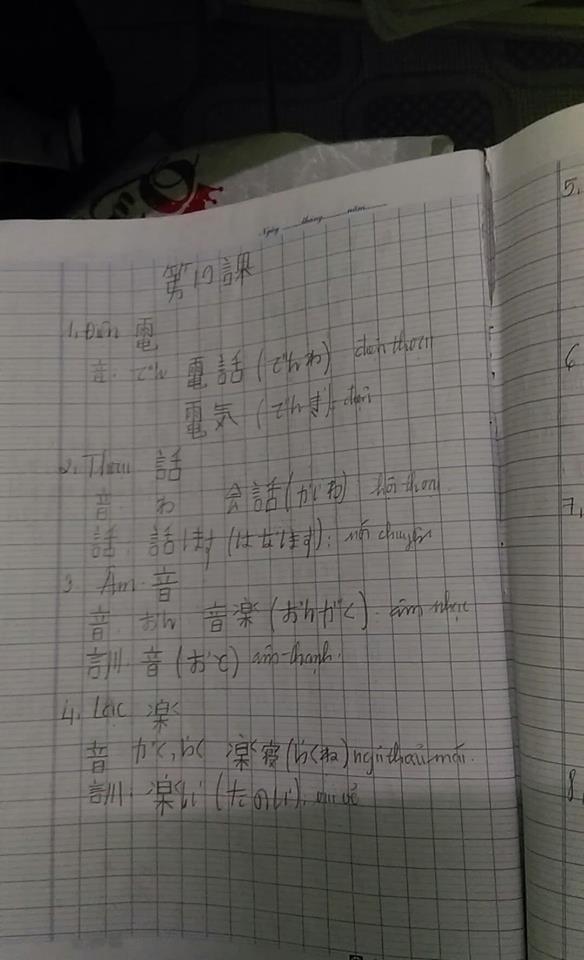 Ngày tháng năm
第17課
1. Điện 電
音: でん 電話 (でんわ) điện thoại
電気 (でんき): điện
2. Thoại 話
音: わ 会話 (かいわ) hội thoại
話: 話します (はなします): nói chuyện
3. Âm 音
音: おん 音楽 (おんがく): âm nhạc
訓: 音 (おと) âm thanh.
4. Lạc 楽
音 がく, らく 楽寝 (らくね) ngủ thoải mái.
訓: 楽しい (たのしい): vui vẻ
5.
6
7.
8.